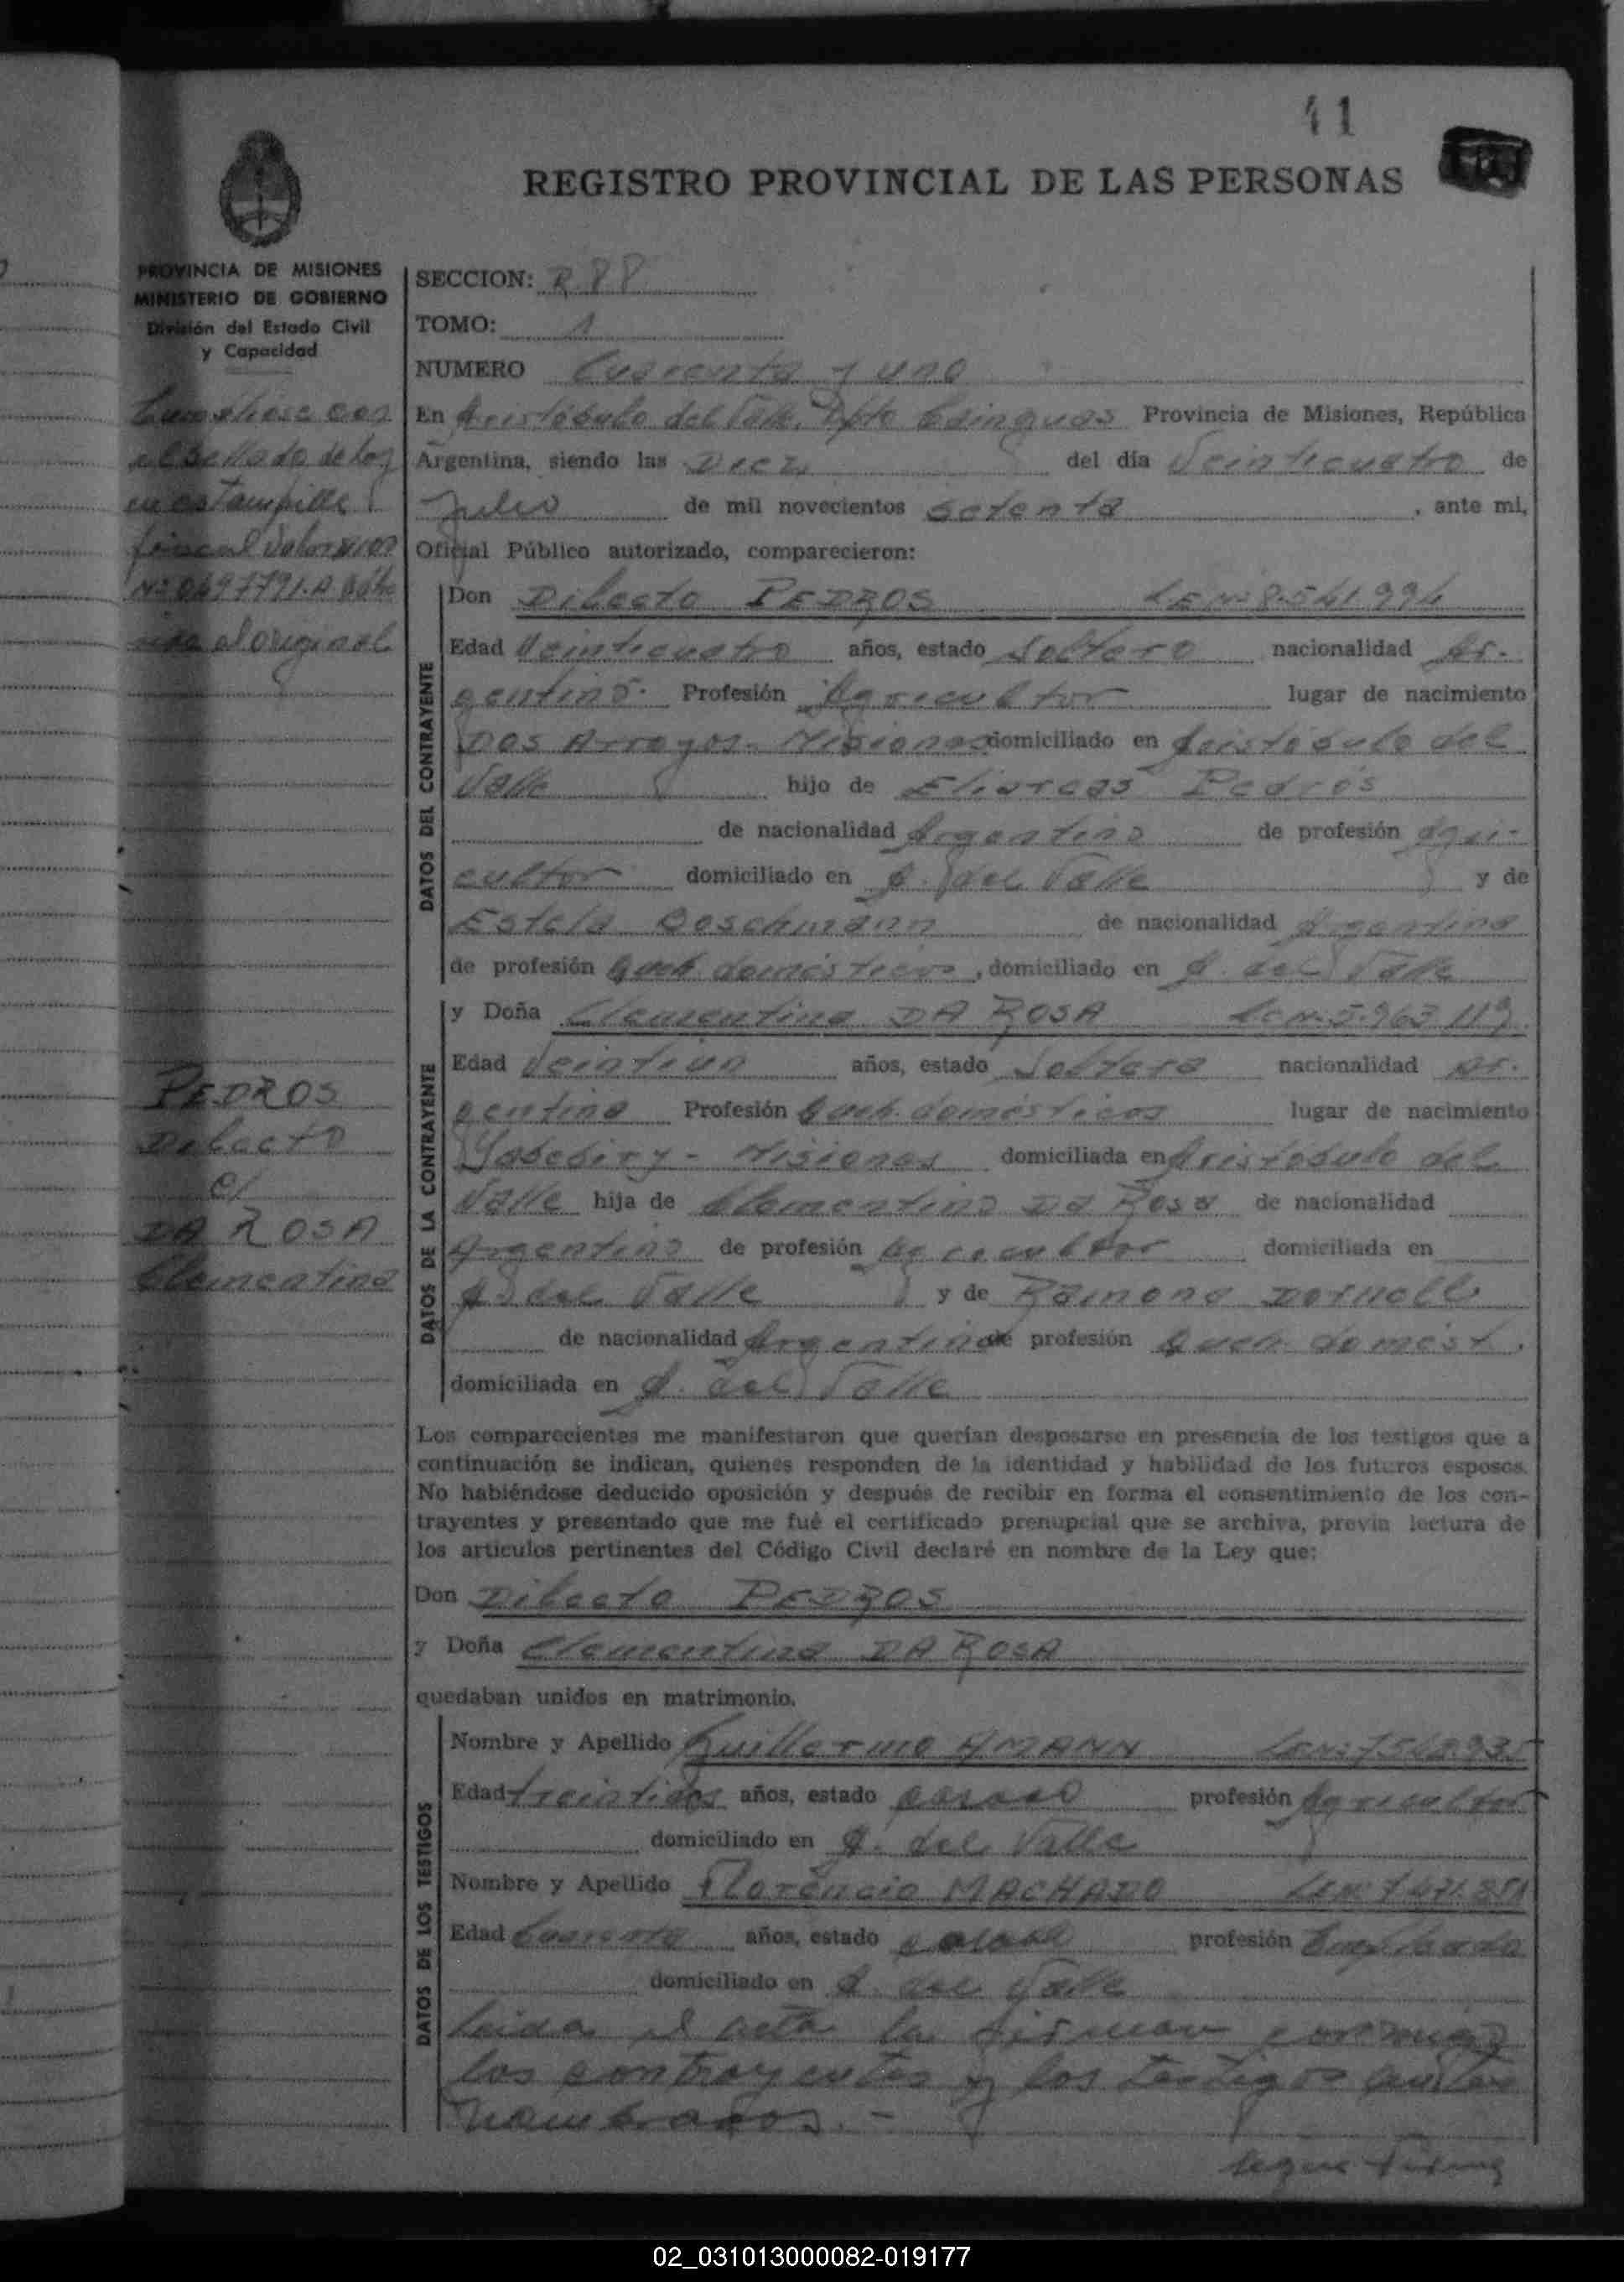 41
REGISTRO PROVINCIAL DE LAS PERSONAS
PROVINCIA DE MISIONES
MINISTERIO DE GOBIERNO
División del Estado Civil
y Capacidad
SECCION: R 88
TOMO: 1
NUMERO Cuarenta y uno
En Aristóbulo del Valle, Dpto Cainguas Provincia de Misiones, República
Argentina, siendo las Diez del día Veinticuatro de
Julio de mil novecientos setenta, ante mi,
Oficial Público autorizado, comparecieron:
en estampilla
fiscal valor
al original
DATOS DEL CONTRAYENTE
Don Dilecto PEDROS LE Nº 8.541.994
Edad Veinticuatro años, estado Soltero nacionalidad Ar-
gentino. Profesión Agricultor lugar de nacimiento
Dos Arroyos - Misiones domiciliado en Aristóbulo del
Valle hijo de Pedros
de nacionalidad Argentino de profesión Agri-
cultor domiciliado en A. del Valle y de
Estela Boschmann de nacionalidad Argentina
de profesión Queh. domésticos, domiciliado en A. del Valle
DATOS DE LA CONTRAYENTE
y Doña Clementina DA ROSA LC Nº 5.963.119
Edad Veintiun años, estado Soltera nacionalidad Ar-
gentina Profesión Queh. domésticos lugar de nacimiento
Yabebiry - Misiones domiciliada en Aristóbulo del
Valle hija de Clementino Da Rosa de nacionalidad
Argentino de profesión Agricultor domiciliada en
A. del Valle y de Ramona Dornell
de nacionalidad Argentina de profesión Queh. domést.
domiciliada en A. del Valle
PEDROS
Dilecto
c/
DA ROSA
Clementina
Los comparecientes me manifestaron que querían desposarse en presencia de los testigos que a
continuación se indican, quienes responden de la identidad y habilidad de los futuros esposos.
No habiéndose deducido oposición y después de recibir en forma el consentimiento de los con-
trayentes y presentado que me fué el certificado prenupcial que se archiva, previa lectura de
los artículos pertinentes del Código Civil declaré en nombre de la Ley que:
Don Dilecto PEDROS
y Doña Clementina DA ROSA
quedaban unidos en matrimonio.
DATOS DE LOS TESTIGOS
Nombre y Apellido Guillermo AMANN
Edad treintidos años, estado casado profesión Agricultor
domiciliado en A. del Valle
Nombre y Apellido Florencio MACHADO
Edad Cuarenta años, estado casado profesión Empleado
domiciliado en A. del Valle
leida el acta la firman conmigo
los contrayentes y los testigos antes
nombrados.-
Sigue firma
02_031013000082-019177